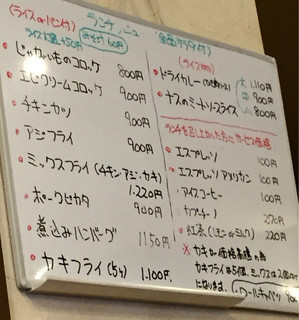 (ライス or パン付)
ランチメニュー
ライス大盛+50円
みそ汁 60円
・じゃがいものコロッケ 800円
・エビクリームコロッケ 900円
・チキンカツ 900円
・アジフライ 900円
・ミックスフライ(チキン・アジ・カキ) 1.220円
・ポークピカタ 900円
・煮込みハンバーグ 1150円
・カキフライ(5ケ) 1.100円
(全品サラダ付)
(ライス物)
・ドライカレー 大 1.110円
中 900円
小 800円
・ナスのミートソースライス
ランチを召し上がった方にサービス価格
・エスプレッソ 100円
・エスプレッソアメリカン 100円
・アイスコーヒー 100円
・カプチーノ 270円
・紅茶(レモン or ミルク) 220円
※カキが価格高騰の為
カキフライは5個、ミックスは2個
になります。ロールキャベツ